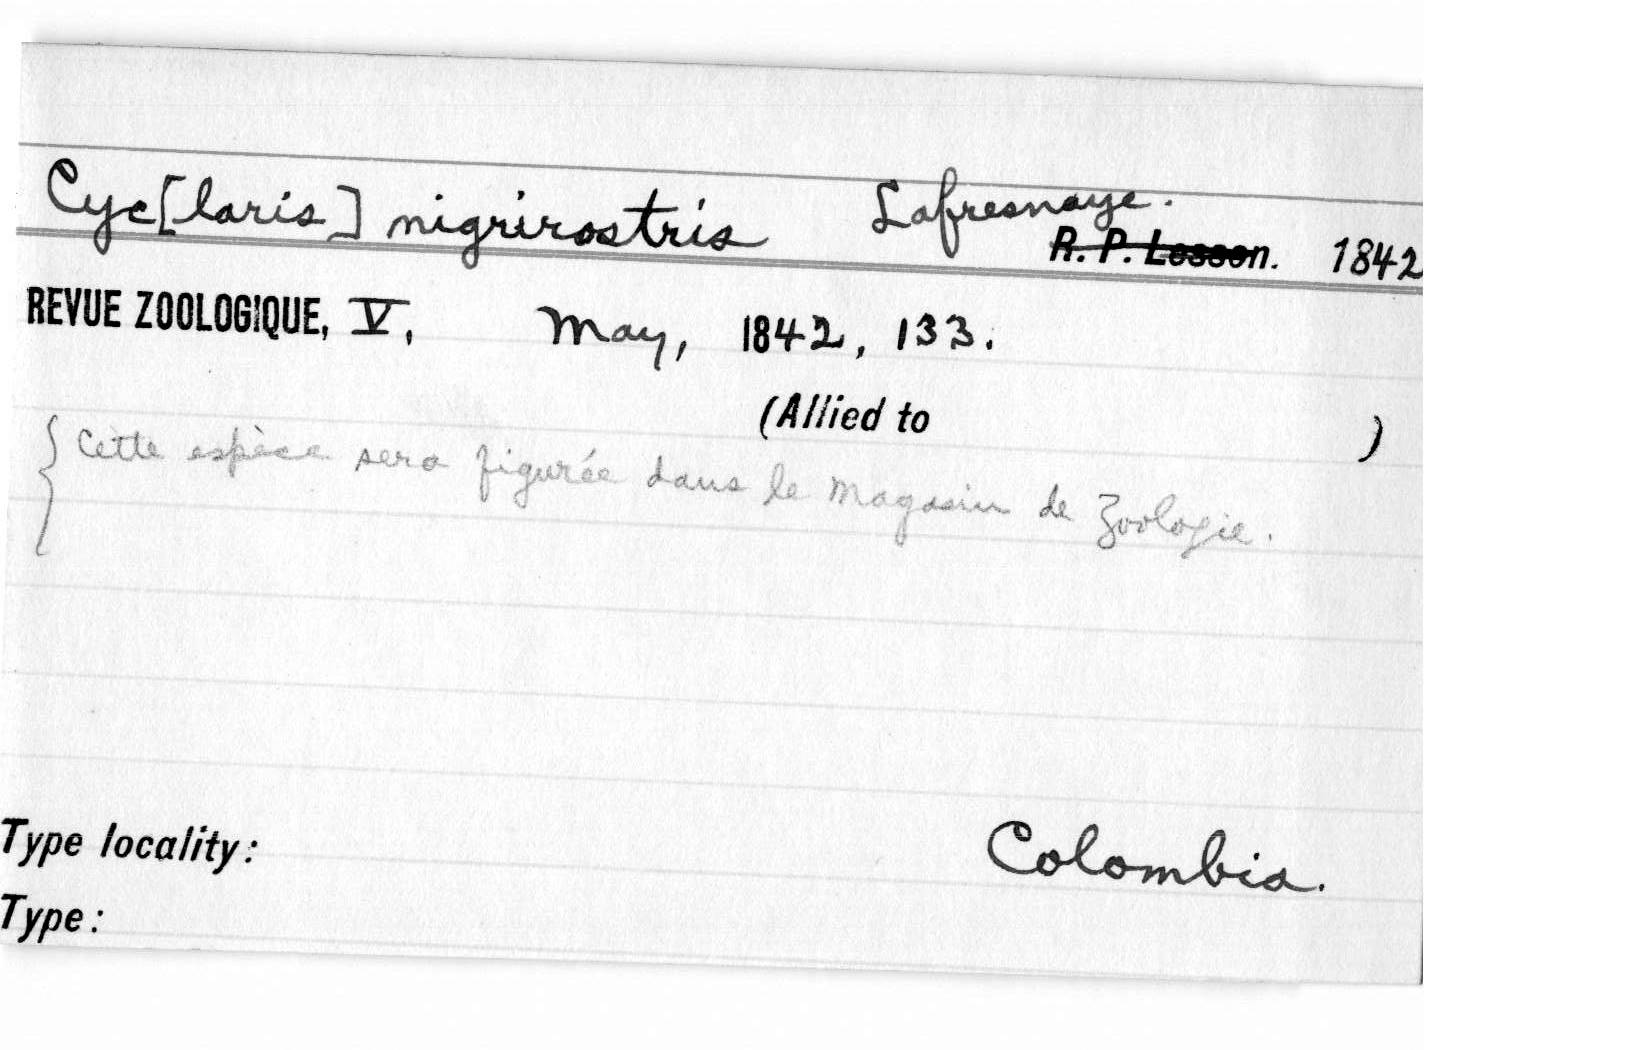 Cyc[laris] nigrirostris Lafresnaye.
R. P. Lesson. 1842
REVUE ZOOLOGIQUE, V, May, 1842, 133.
(Allied to )
{ Cette espèce sera figurée dans le Magasin de Zoologie.
Type locality: Colombia.
Type: